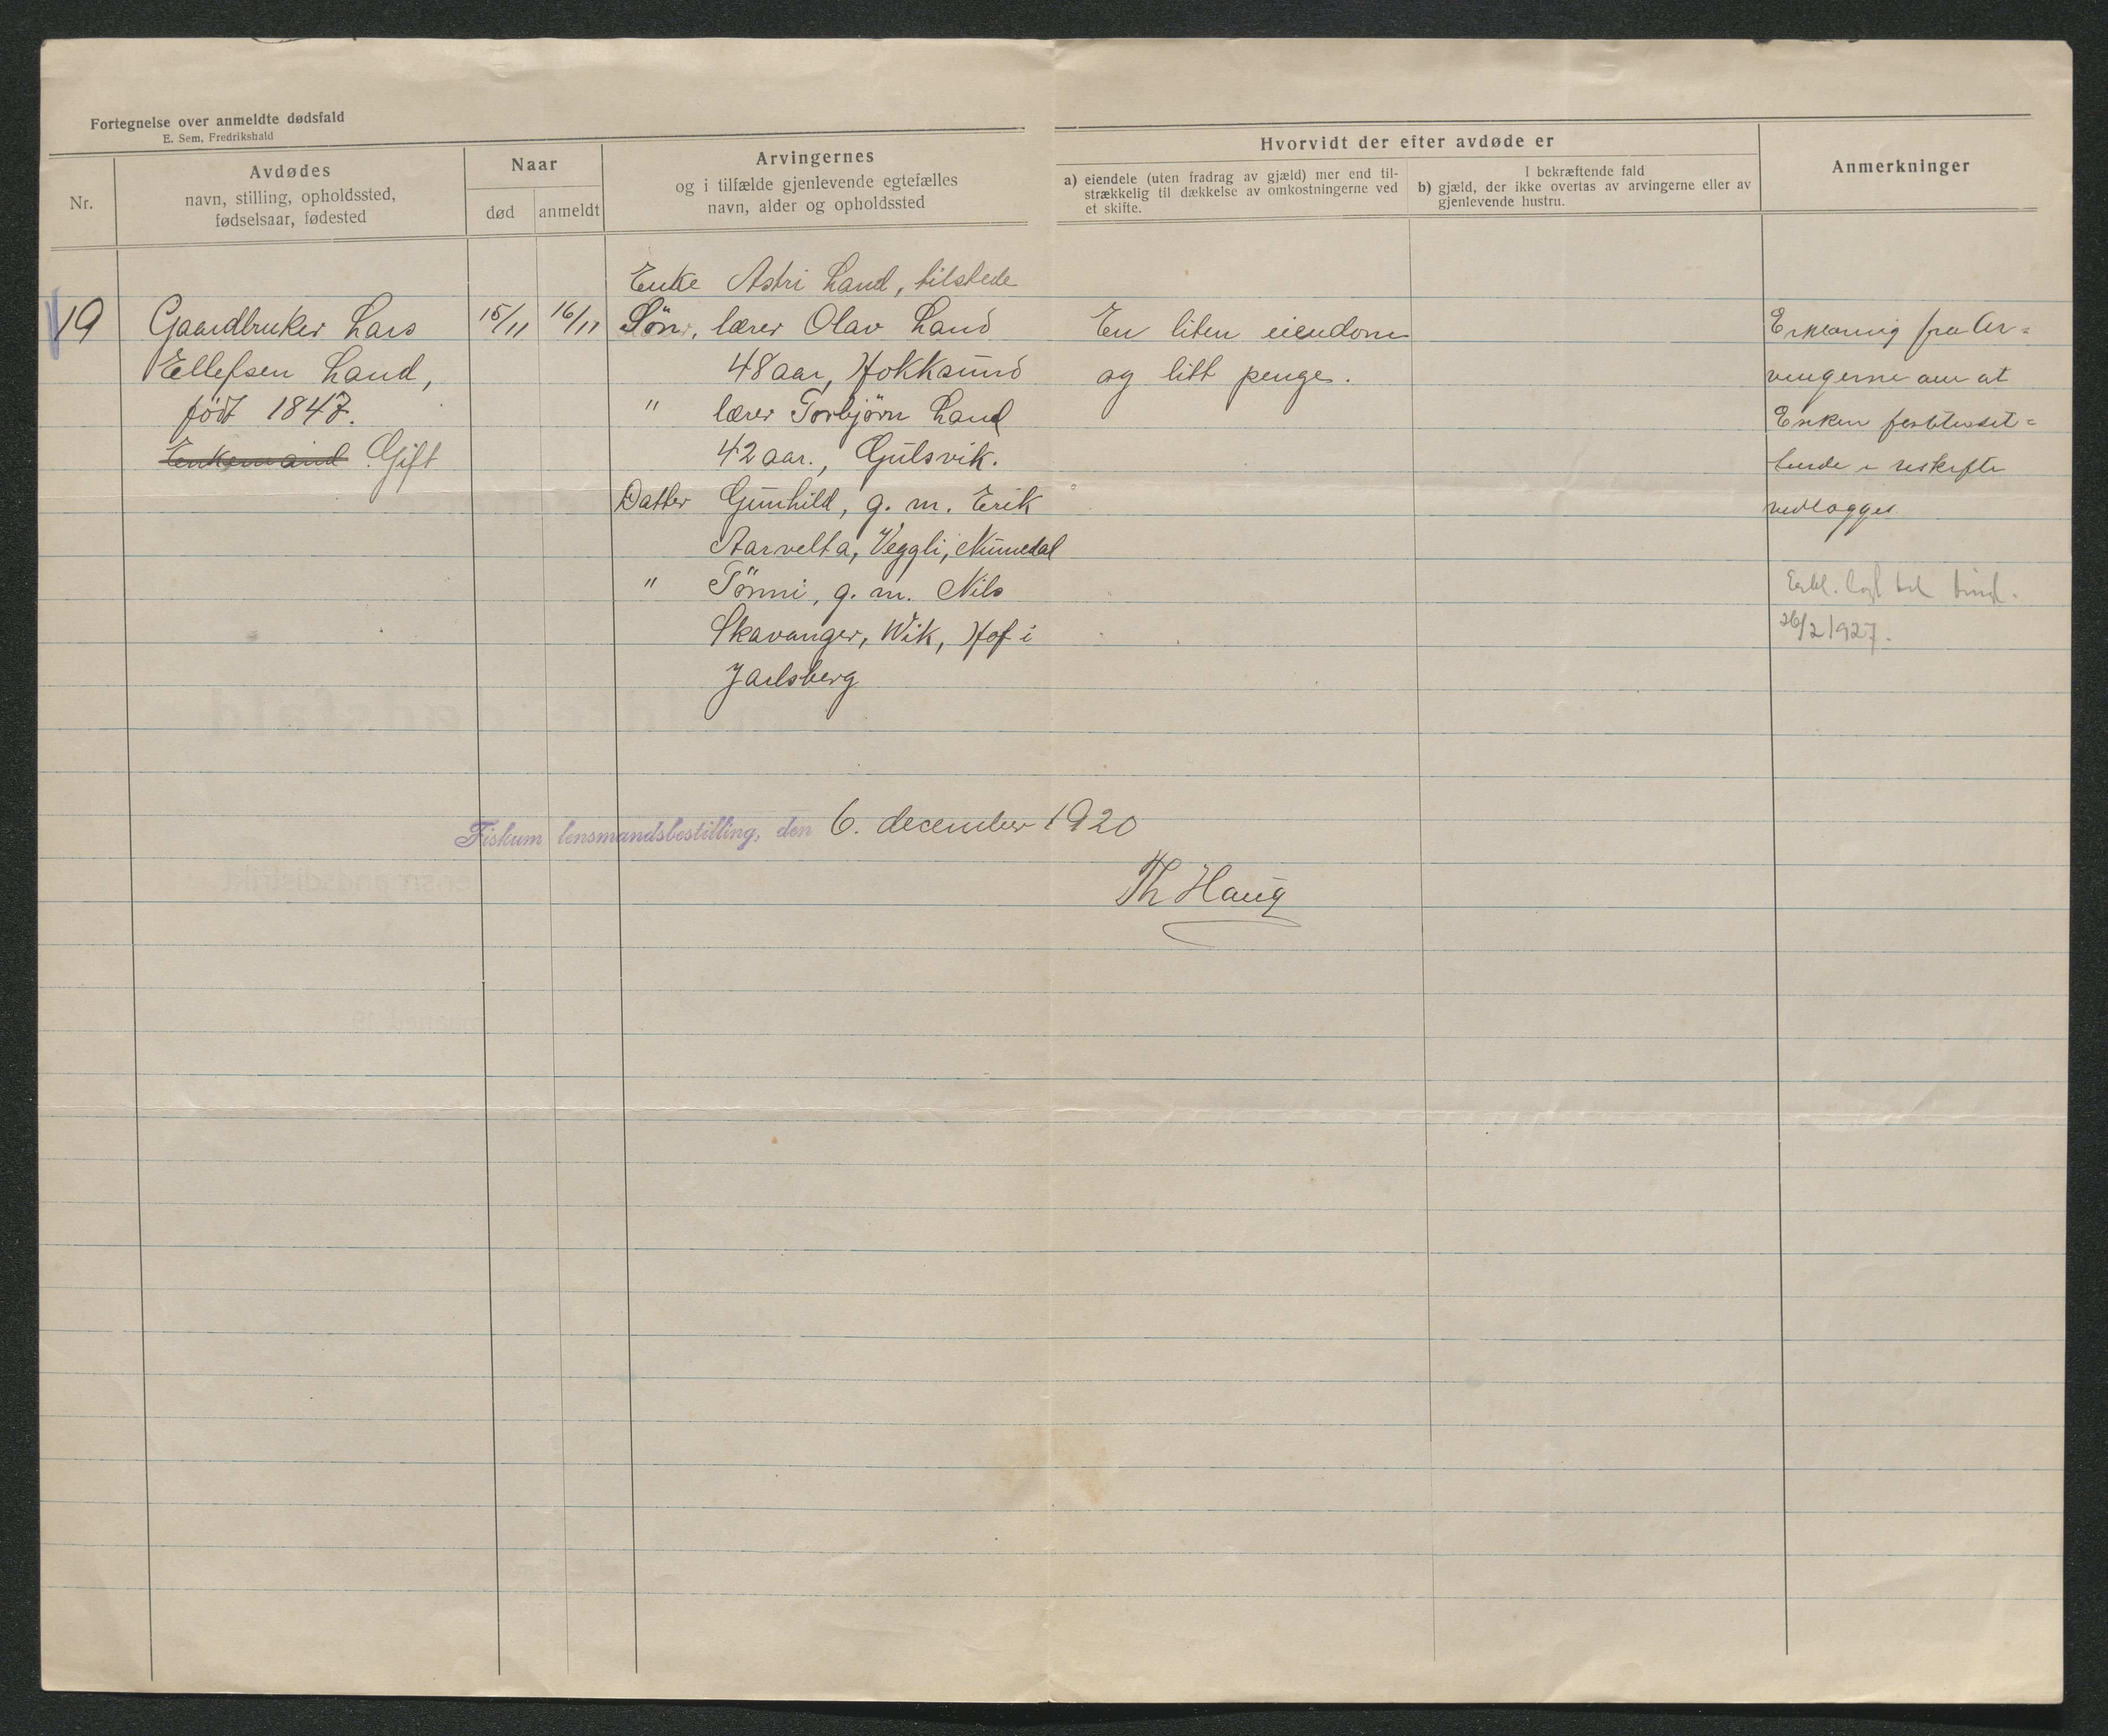 Fortegnelse over anmeldte dødsfald
E. Sem, Fredrikshald
Nr.
Avdødes
navn, stilling, opholdssted,
fødselsaar, fødested
Naar
død
anmeldt
Arvingernes
og i tilfælde gjenlevende egtefælles
navn, alder og opholdssted
Hvorvidt der efter avdøde er
a) eiendele (uten fradrag av gjæld) mer end til-
strækkelig til dækkelse av omkostningerne ved
et skifte.
I bekræftende fald
b) gjæld, der ikke overtas av arvingerne eller av
gjenlevende hustru.
Anmerkninger
19
Gaardbruker Lars
Ellefsen Land,
født 1847.
Enkemand Gift
15/11
16/11
Enke Astri Land, tilstede
Søn, lærer Olav Land
48 aar, Hokksund
" lærer Torbjörn Land
42 aar., Gulsvik.
Datter Gunhild, g. m. Erik
Aarvelta, Veggli, Numedal
" Tönni, g. m. Nils
Skavanger, Wik, Hof i
Jarlsberg
En liten eiendom
og litt penge.
Erklæring fra Ar-
vingerne om at
Enken
i uskifte
vedlægges
Erkl. lagt til
26/2 1927.
Fiskum lensmandsbestilling, den 6. december 1920
Th Haug